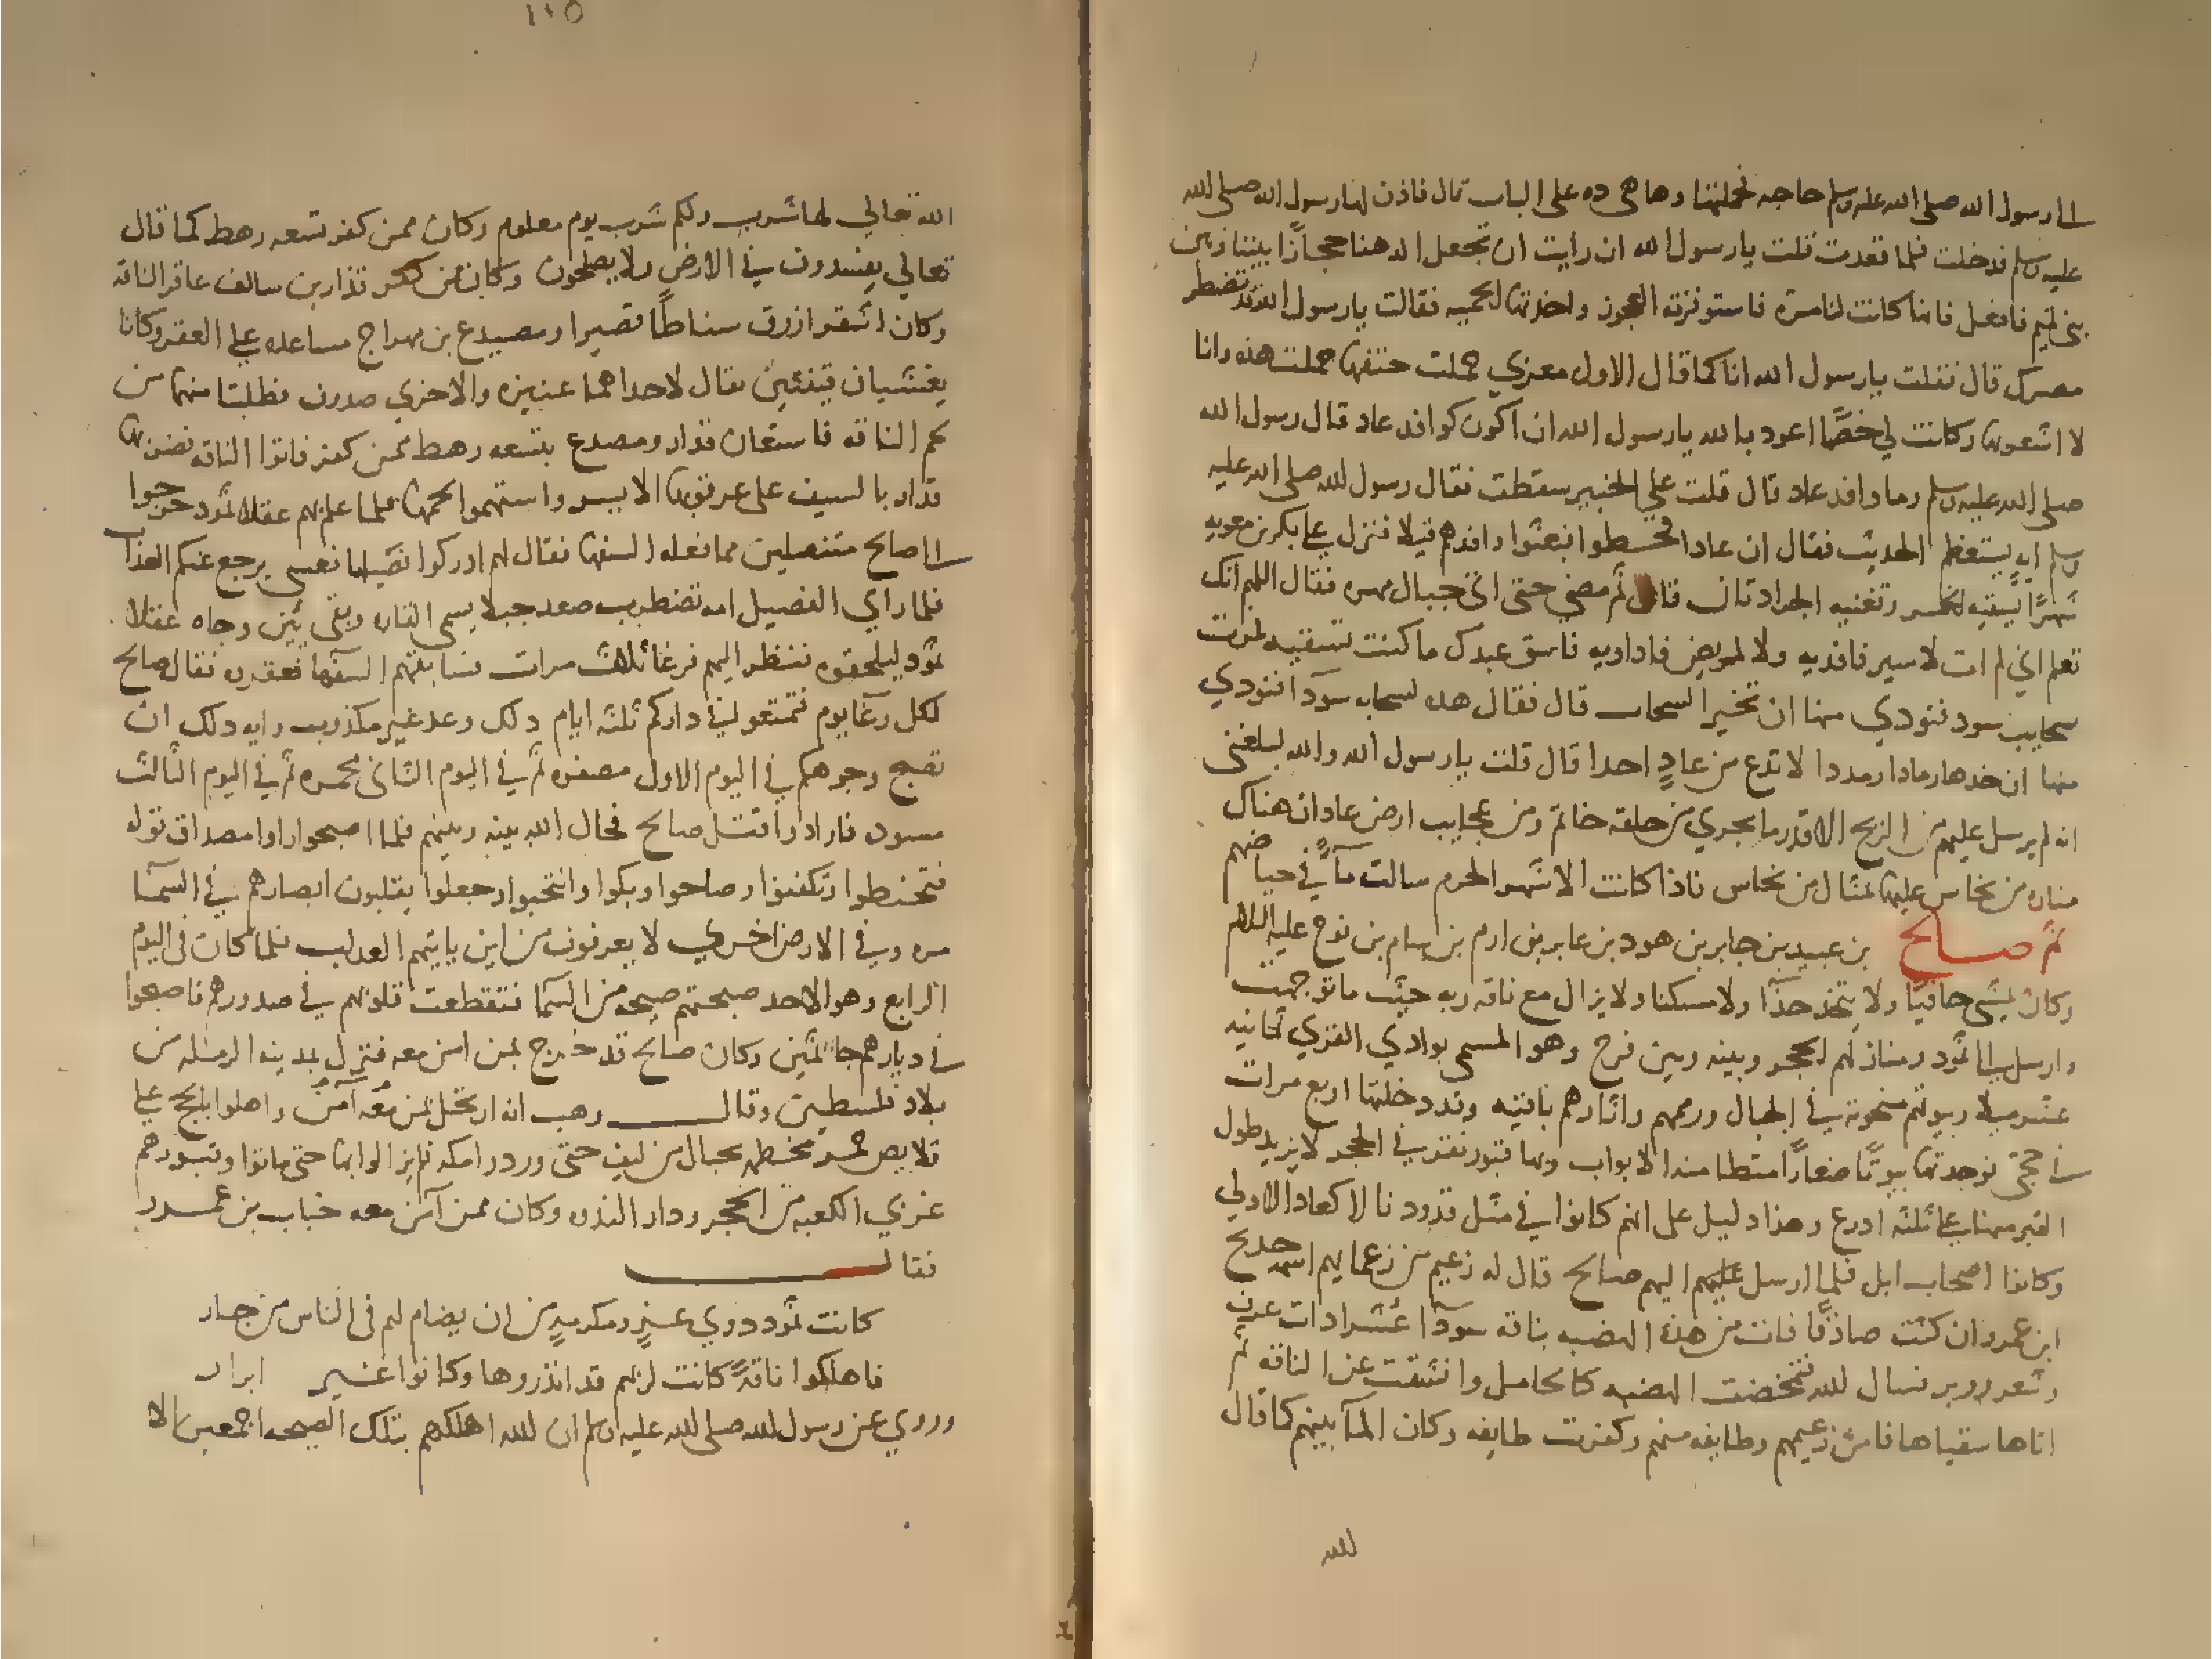 الى رسول الله صلى الله عليه وسلم حاجه فحملتها وها هي ده على الباب قال فاذن لها رسول الله صلى الله
عليه وسلم فدخلت فلما قعدت قلت يا رسول الله ان رايت ان تجعل الدهنا حجازا بيننا وبين
بني تميم فافعل فانها كانت لنا مره فاستوفزته العجوز واخذتها الحميه فقالت يا رسول الله فاين تضطر
مضرك قال فقلت يا رسول الله انا كما قال الاول معزي حملت حتفها حملت هذه وانا
لا اشعر بها وكانت لي خصما اعوذ بالله يا رسول الله ان اكون كوافد عاد قال رسول الله
صلى الله عليه وسلم وما وافد عاد قال قلت على الخبير سقطت فقال رسول لله صلى الله عليه
وسلم ايه يستعظم الحديث فقال ان عادا قحطوا فبعثوا وافدهم قيلا فنزل على بكر بن معويه
شهرا يسقيه الخمر وتغنيه الجرادتان قال ثم مضى حتى اتى جبال مهره فقال اللهم انك
تعلم اني لم ات لاسير فافديه ولا لمريض فاداويه فاسق عبدك ما كنت تسقيه فمرت
سحايب سود فنودي منها ان تخير السحاب قال فقال هذه لسحابه سودآ فنودي
منها ان خذها رمادا رمددا لا تدع من عادٍ احدا قال قلت يا رسول الله والله لبلغني
انه لم يرسل عليهم من الريح الا قدر ما يجري من حلقه خاتم ومن عجايب ارض عاد ان هناك
مناره من نحاس عليها تمثال من نحاس فاذا كانت الاشهر الحرم سالت مآً في حياضهم
ثم صالح بن عبيد بن جابر بن هود بن عابر بن ارم بن سام بن نوح عليه السلام
وكان يمشي حافيا ولا يتخذ حذآ ولا مسكنا ولا يزال مع ناقه ربه حيث ما توجهت
وارسل الى ثمود ومنازلهم الحجر وبينه وبين قرح وهو المسمى بوادي القرى ثمانيه
عشر ميلا وبيوتهم منحوته في الجبال ورممهم واثارهم باقيه وقد دخلتها اربع مرات
في حجتي فوجدتها بيوتا صغارا منها الابواب وبها قبور نقر في الحجر لا يزيد طول
القبر منها على ثلثه ادرع وهذا دليل على انهم كانوا في مثل قدودنا لا كعاد الاولى
وكانوا اصحاب ابل فلما ارسل اليهم صالح قال له زعيم من زعمايهم اسمه جدع
ابن عمرو ان كنت صادقا فات من هذه الهضبه بناقه سودآ عشرا ذات عرف
وشعر ووبر فسال لله فتمخضت الهضبه كالحامل وانشقت عن الناقه ثم
اتاها سقياها فامن زعيمهم وطايفه منهم وكفرت طايفه وكان المآ بينهم كما قال
لله
١١٥
الله تعالى لها شرب ولكم شرب يوم معلوم وكان ممن كفر تسعه رهط كما قال
تعالى يفسدون في الارض ولا يصلحون وكان ممن كفر قذار بن سالف عاقر الناقه
وكان اشقر ازرق سناطا قصيرا ومصدع بن مهراج مساعده على العقر وكانا
يغشيان قينتين يقال لاحداهما عنيزه والاخرى صدوف فطلبتا منهما من
لحم الناقه فاستعان قدار ومصدع بتسعه رهط ممن كفر فاتوا الناقه فضربها
قدار بالسيف على عرقوبها الايسر واستهموا لحمها فلما علم بهم عقلا ثمود خرجوا
الى صالح متنصلين مما فعله السفها فقال لهم ادركوا فصيلها فعسى يرجع عنكم العذاب
فلما راى الفصيل امه تضطرب صعد جبلا يسمى القاره وبقي يئن وجاه عقلا
ثمود ليلحقوه فنظر اليهم فرغا ثلاث مرات فسابقتهم السفها فعقروه فقال صالح
لكل رغا يوم فتمتعوا في داركم ثلثه ايام ذلك وعد غير مكذوب وايه ذلك ان
تصبح وجوهكم في اليوم الاول مصفره ثم في اليوم الثاني محمره ثم في اليوم الثالث
مسوده فارادوا قتل صالح فحال الله بينه وبينهم فلما اصبحوا راوا مصداق قوله
فتحنطوا وتكفنوا وصاحوا وبكوا وانتحبوا وجعلوا يقلبون ابصارهم في السمآ
مره وفي الارض اخرى لا يعرفون من اين ياتيهم العذاب فلما كان في اليوم
الرابع وهو الاحد صبحتهم صيحه من السما فتقطعت قلوبهم في صدورهم فاصبحوا
في ديارهم جاثمين وكان صالح قد خرج بمن امن معه فنزل بمدينه الرمله من
بلاد فلسطين وقال وهب انه ارتحل بمن معه آمن واهلوا بالحج على
قلايص حمر مخطمه بحبال من ليف حتى وردوا مكه فلم يزالوا بها حتى ماتوا وقبورهم
غربي الكعبه من الحجر ودار الندوه وكان ممن آمن معه خباب بن عمرو
فقال
كانت ثمود ذوي عز ومكرمة من ان يضام لهم في الناس من جار
فاهلكوا ناقةً كانت لربهم قد انذروها وكانوا غير ابرار
وروي عن رسول لله صلى لله عليه وسلم ان لله اهلكهم بتلك الصيحه اجمعين الا